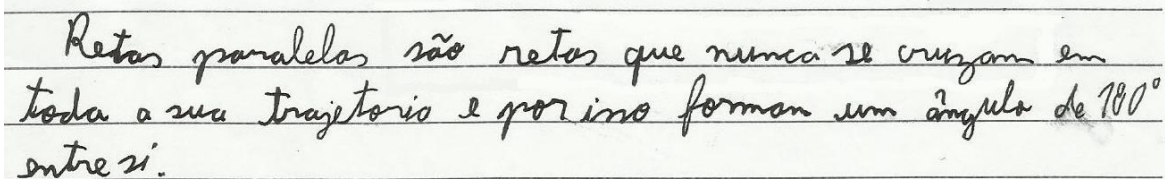 Retas paralelas são retas que nunca se cruzam em
toda a sua trajetorio e por isso forman um ângulo de 180°
entre si.